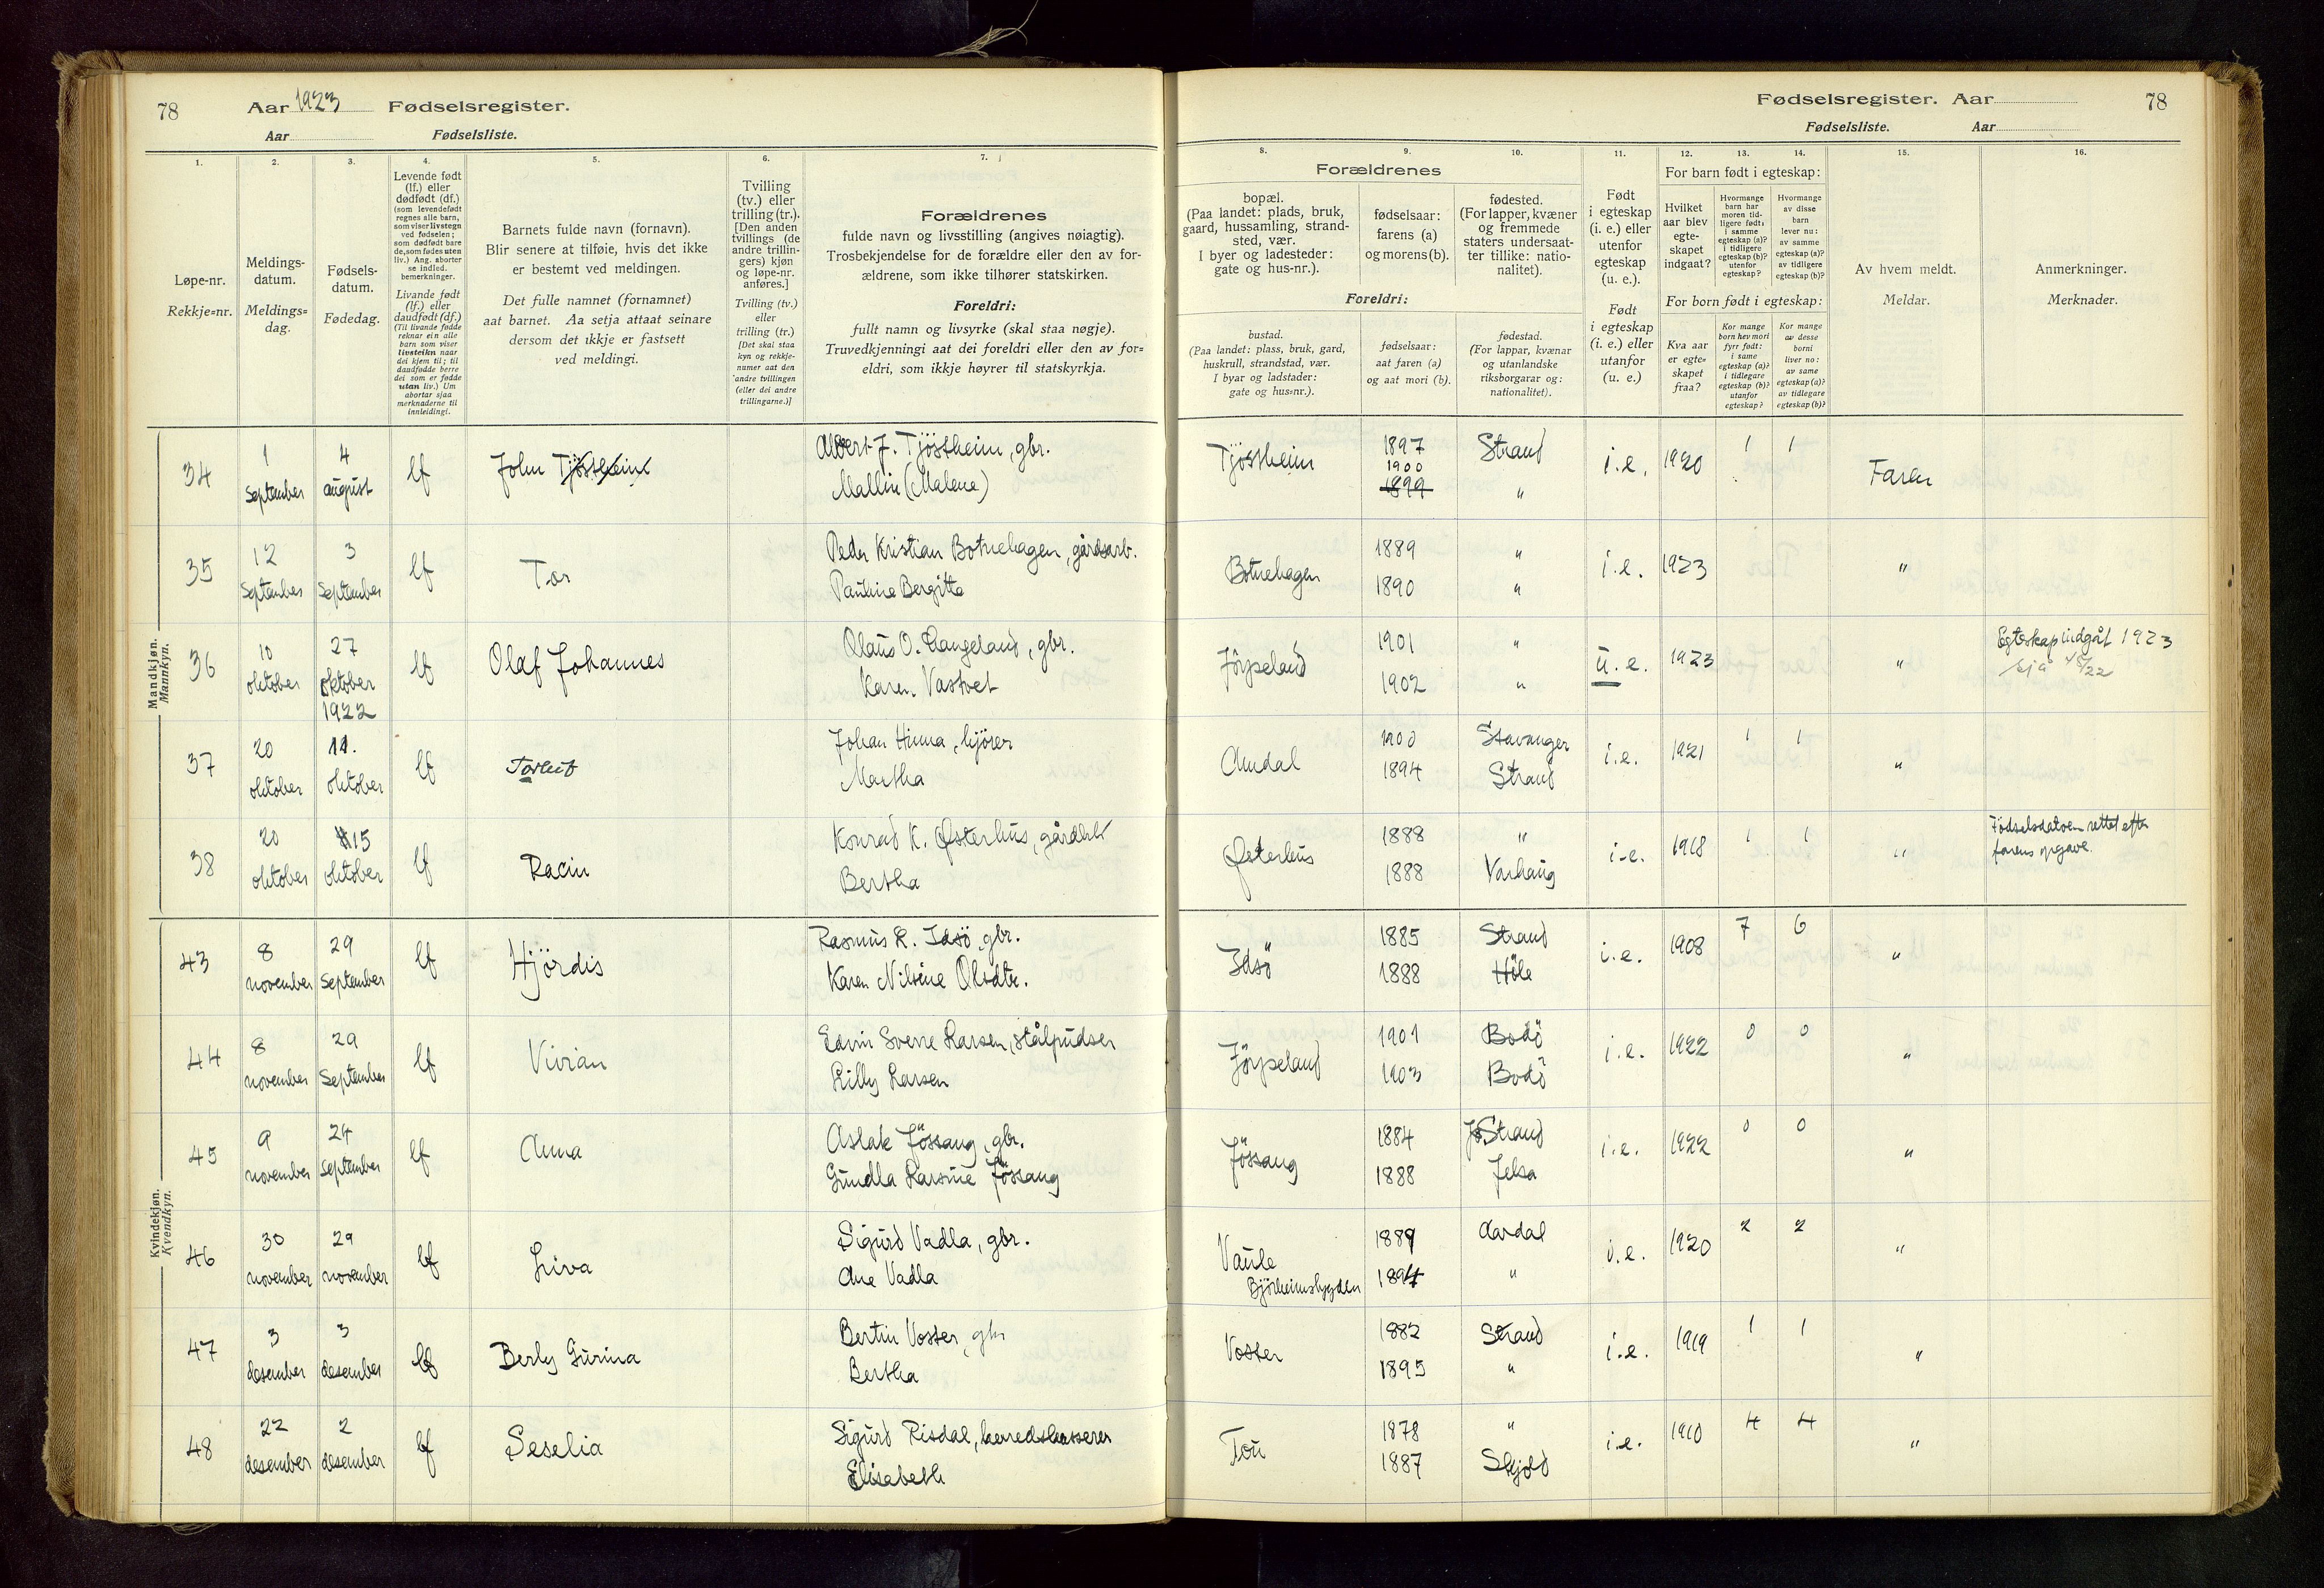 78 Aar 1923 Fødselsregister.
Aar Fødselsliste.
Fødselsregister. Aar 78
Fødselsliste. Aar
1. 2. 3. 4. 5. 6. 7.
Løpe-nr.
Rekkje=nr.
Meldings-
datum.
Meldings=
dag.
Fødsels-
datum.
Fødedag.
Levende født
(lf.) eller
dødfødt (df.)
(som levendefødt
regnes alle barn,
som viser livstegn
ved fødselen;
som dødfødt bare
de, som fødes uten
liv.) Ang. aborter
se indled.
bemerkninger.
Livande født
(lf.) eller
daudfødt (df.)
(Til livande fødde
reknar ein alle
barn som viser
livsteikn naar
dei kjem til; til
daudfødde berre
dei som er fødde
utan liv.) Um
abortar sjaa
merknaderne til
innleidingi.
Barnets fulde navn (fornavn).
Blir senere at tilføie, hvis det ikke
er bestemt ved meldingen.
Det fulle namnet (fornamnet)
aat barnet. Aa setja attaat seinare
dersom det ikkje er fastsett
ved meldingi.
Tvilling
(tv.) eller
trilling (tr.).
[Den anden
tvillings (de
andre trillin-
gers) kjøn
og løpe-nr.
anføres.]
Tvilling (tv.)
eller
trilling (tr.)
[Det skal staa
kyn og rekkje-
numer aat den
andre tvillingen
(eller dei andre
trillingarne.)]
Forældrenes
fulde navn og livsstilling (angives nøiagtig).
Trosbekjendelse for de forældre eller den av for-
ældrene, som ikke tilhører statskirken.
Foreldri:
fullt namn og livsyrke (skal staa nøgje).
Truvedkjenningi aat dei foreldri eller den av for=
eldri, som ikkje høyrer til statskyrkja.
8. 9. 10. 11. 12. 13. 14. 15. 16.
Forældrenes
bopæl.
(Paa landet: plads, bruk,
gaard, hussamling, strand-
sted, vær.
I byer og ladesteder:
gate og hus-nr.).
fødselsaar:
farens (a)
og morens (b).
fødested.
(For lapper, kvæner
og fremmede
staters undersaat-
ter tillike: natio-
nalitet).
Foreldri:
bustad.
(Paa landet: plass, bruk, gard,
huskrull, strandstad, vær.
I byar og ladstader:
gate og hus=nr.).
fødselsaar:
aat faren (a)
og aat mori (b).
fødestad.
(For lappar, kvænar
og utanlandske
riksborgarar og:
nationalitet).
Født
i egteskap
(i. e.) eller
utenfor
egteskap
(u. e.).
Født
i egteskap
(i. e.) eller
utanfor
(u. e.)
For barn født i egteskap:
Hvilket
aar blev
egte-
skapet
indgaat?
Hvormange
barn har
moren tid-
ligere født:
i samme
egteskap (a)?
i tidligere
egteskap (b)?
utenfor
egteskap?
Hvormange
av disse
barn
lever nu:
av samme
egteskap (a)?
av tidligere
egteskap (b)?
For born født i egteskap:
Kva aar
er egte=
skapet
fraa?
Kor mange
born hev mori
fyrr født:
i same
egteskap (a)?
i tidlegare
egteskap (b)?
utanfor
egteskap?
Kor mange
av desse
borni
liver no:
av same
egteskap (a)?
av tidlegare
egteskap (b)?
Av hvem meldt.
Meldar.
Anmerkninger.
Merknader.
Mandkjøn.
Mannkyn.
34 1 september 4 august lf John Tjöstheim Albert J. Tjöstheim, gbr. Tjöstheim 1897 Strand i.e. 1920 1 1 Faren
Mallin (Malene) 1900 1899 "
35 12 September 3 September lf Tor Peder Kristian Botnehagen, gårdsarb. Botnehagen 1889 " i.e. 1923 "
Pauline Bergitte 1890 "
36 10 oktober 27 oktober 1922 lf Olaf Johannes Olaus O. Langeland, gbr. Jörpeland 1901 " u.e. 1923 " Egteskap indgåt 1923
Karen Vastvet 1902 "
37 20 oktober 11. oktober lf Torleif Johan Hinna, kjörer Amdal 1900 Stavanger i.e. 1921 1 1 "
Martha 1894 Strand
38 20 oktober 15 oktober lf Racin Konrad K. Østerhus, gårdbr Østerhus 1888 " i.e. 1918 1 1 " Fødselsdatoen rettet efter
Bertha 1888 Varhaug farens opgave.
Kvindekjøn.
Kvendkyn.
43 8 november 29 September lf Hjördis Rasmus R. Idsö, gbr. Idsö 1885 Strand i.e. 1908 7 6 "
Karen Nilsine Olsdtr. 1888 Höle
44 8 november 29 September lf Vivian Edvin Sverre Larsen, stålpudser Jörpeland 1901 Bodö i.e. 1922 0 0 "
Lilly Larsen 1903 Bodö
45 9 november 24 September lf Anna Aslak Jössang, gbr. Jössang 1884 Strand i.e. 1922 0 0 "
Gundla Larsine Jössang 1888 Jelsa
46 30 november 29 november lf Liva Sigurd Vadla, gbr. Vaule 1889 Aardal i.e. 1920 2 2 "
Ane Vadla Björheimsbygden 1894 "
47 3 desember 3 desember lf Berly Gurina Bertin Voster, gbr Voster 1882 Strand i.e. 1919 1 1 "
Bertha 1895 "
48 22 desember 2 desember lf Seselia Sigurd Risdal, herredskasserer Tou 1878 " i.e. 1910 4 4 "
Elisabeth 1887 Skjold